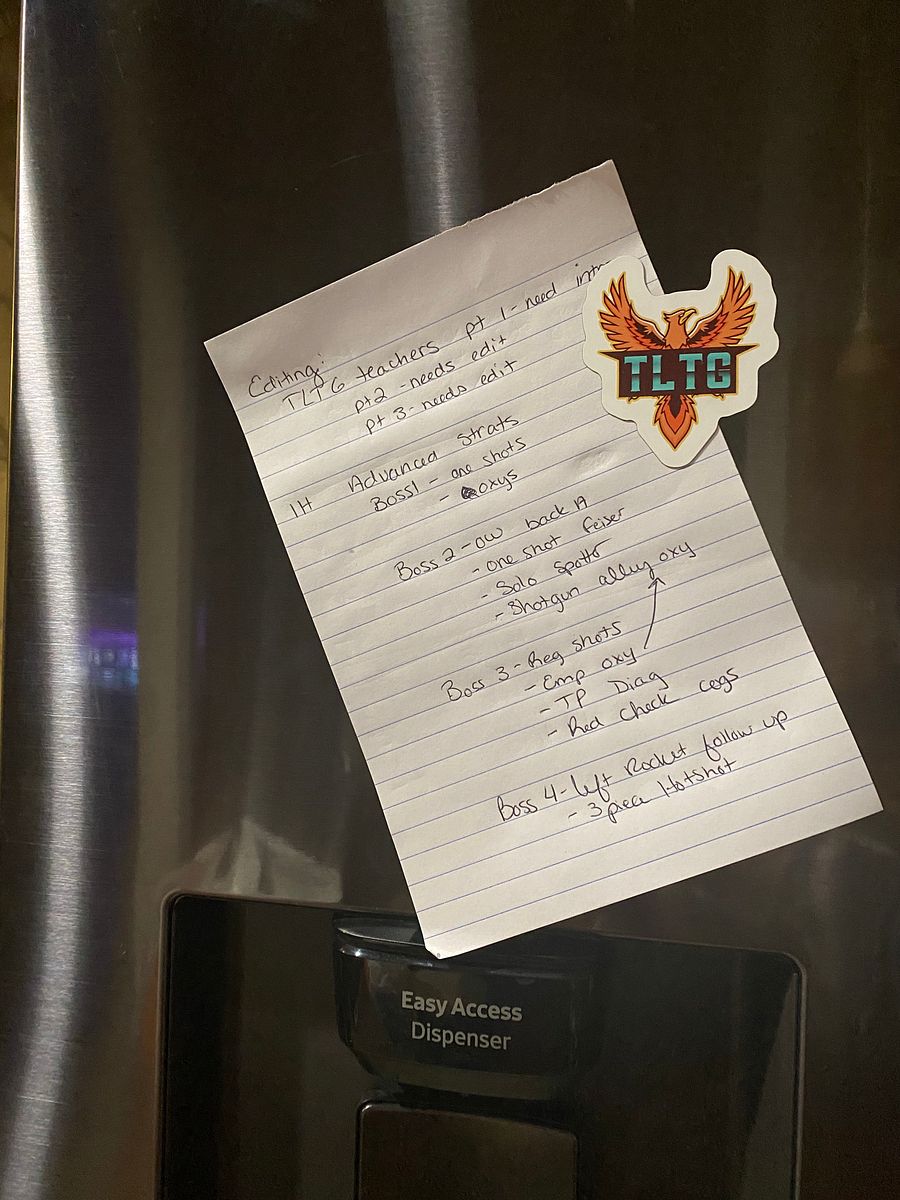 Editing:
TLTG teachers pt 1 - need intro
pt2 - needs edit
pt 3 - needs edit
1H Advanced Strats
Boss1 - one shots
- oxys
Boss 2 - ow back A
- one shot feiser
- Solo Spotter
- Shotgun alley oxy
Boss 3 - Reg shots
- Emp oxy
- TP Diag
- Red check cegs
Boss 4 - left Rocket follow up
- 3 piece Hotshot
TLTG
Easy Access
Dispenser